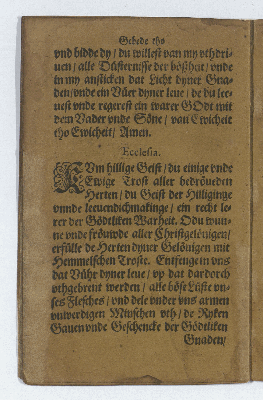 Gebede tho
vnd bidde dy / du willest van my vthdri-
uen / alle Düsternisse der bößhat / vnde
in my ansticken dat Licht dyner Gna-
den / vnde ein Vüer dyner leue / de du le-
uest vnde regerest ein warer GOdt mit
dem Vader vnde Söne / van Ewicheit
tho Ewicheit / Amen.
Ecclesia.
KUm hillige Geist / du einige vnde
Ewige Trost aller bedröueden
Herten / du Geist der Hilliginge
vnnde leuendichmakinge / ein recht le-
rer der Gödtliken Warheit. O du wun-
ne vnde fröuwde aller Christgelönigen /
erfülle de Herten dyner Gelönigen mit
Hemmelschen Troste. Entfenge in vns
dat Vühr dyner leue / vp dat dardorch
vthgebrent werden / alle böse Lüste vn-
ses Flesches / vnd dele vnder vns armen
vnwerdigen Minschen vth / de Ryken
Gauen vnde Geschencke der Gödtliken
Gnaden /